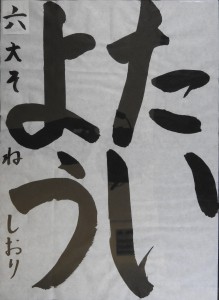 たい
よう
六 大そね しおり